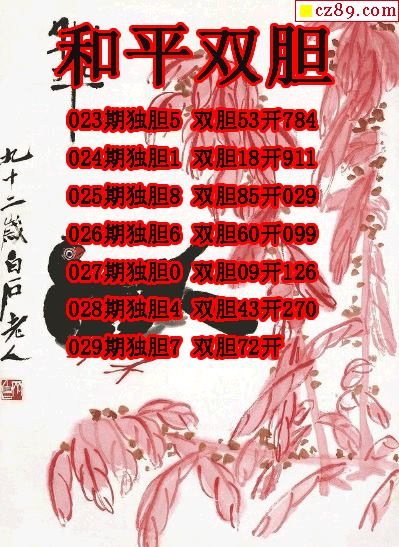 cz89.com
和平双胆
023期独胆5 双胆53开784
024期独胆1 双胆18开911
025期独胆8 双胆85开029
026期独胆6 双胆60开099
027期独胆0 双胆09开126
028期独胆4 双胆43开270
029期独胆7 双胆72开
九十二岁白石老人